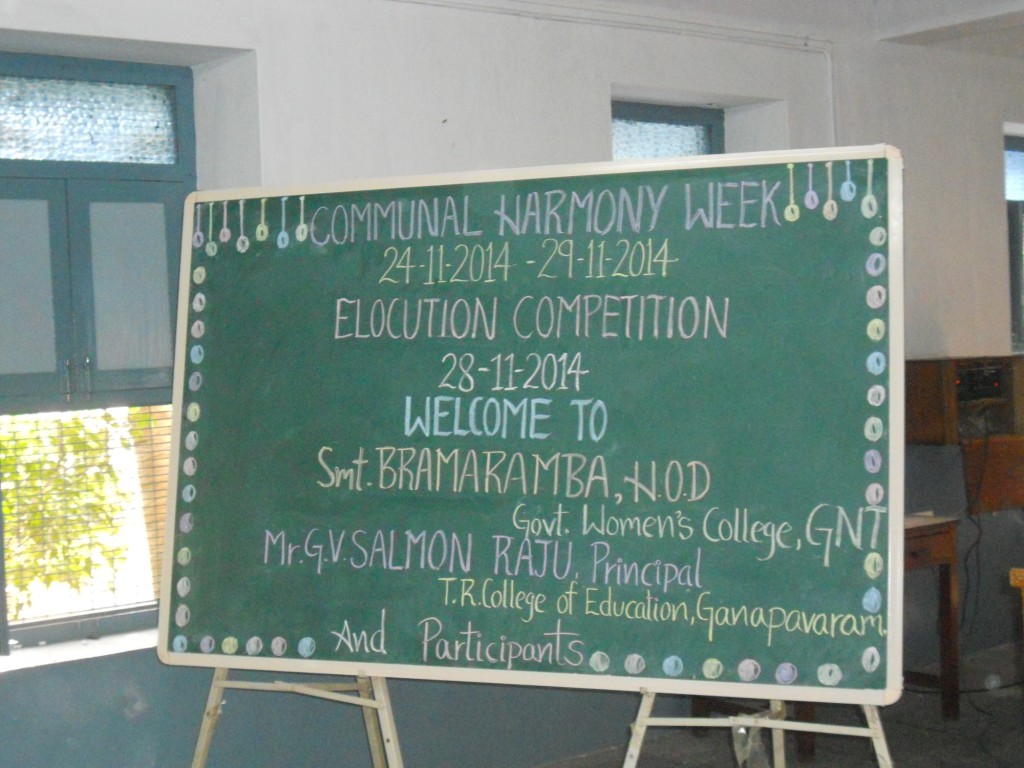 COMMUNAL HARMONY WEEK
24-11-2014 - 29-11-2014
ELOCUTION COMPETITION
28-11-2014
WELCOME TO
Smt. BRAMARAMBA, H.O.D
Govt. Women's College, GNT
Mr. G.V. SALMON RAJU, Principal
T.R. College of Education, Ganapavaram.
And Participants